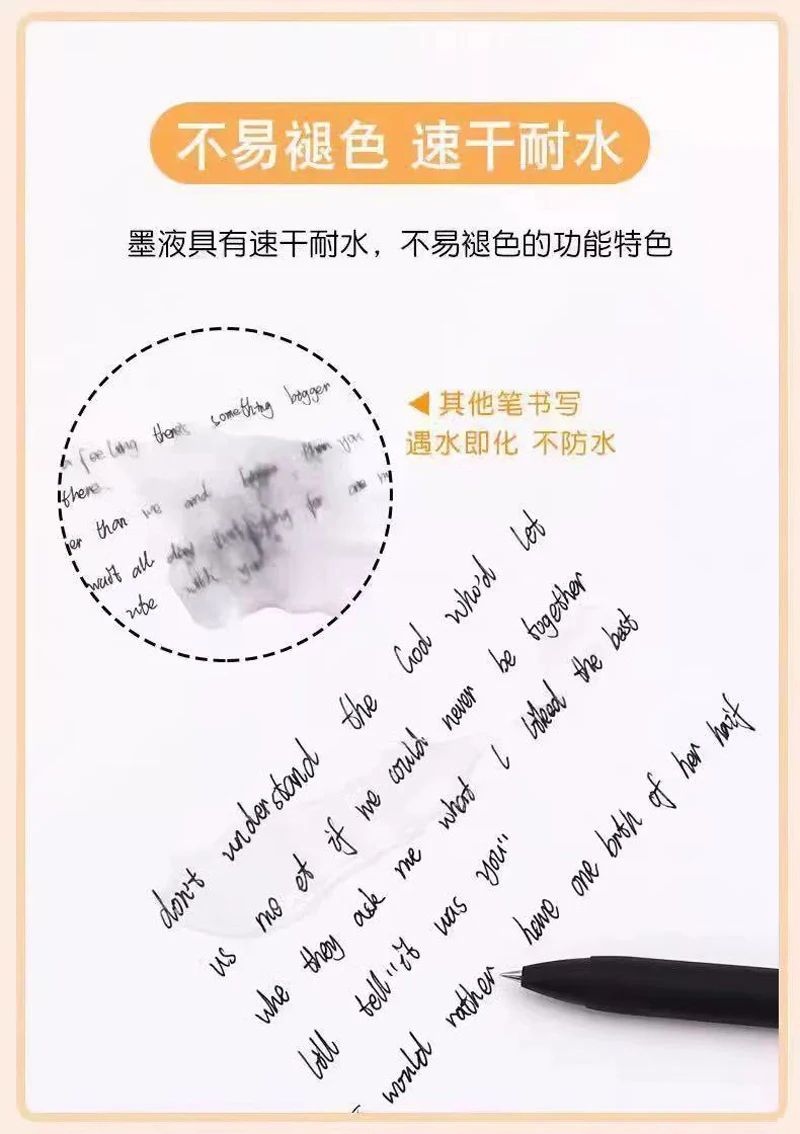 不易褪色 速干耐水
墨液具有速干耐水，不易褪色的功能特色
◀其他笔书写
遇水即化 不防水
a feeling there's something bigger
there. than you
er than we and
wait all day for
with you
don't understand the God who'd let
us me et if we could never be together
whe they ask me what I liked the best
till tell "it was you"
I would rather have one brth of her hair